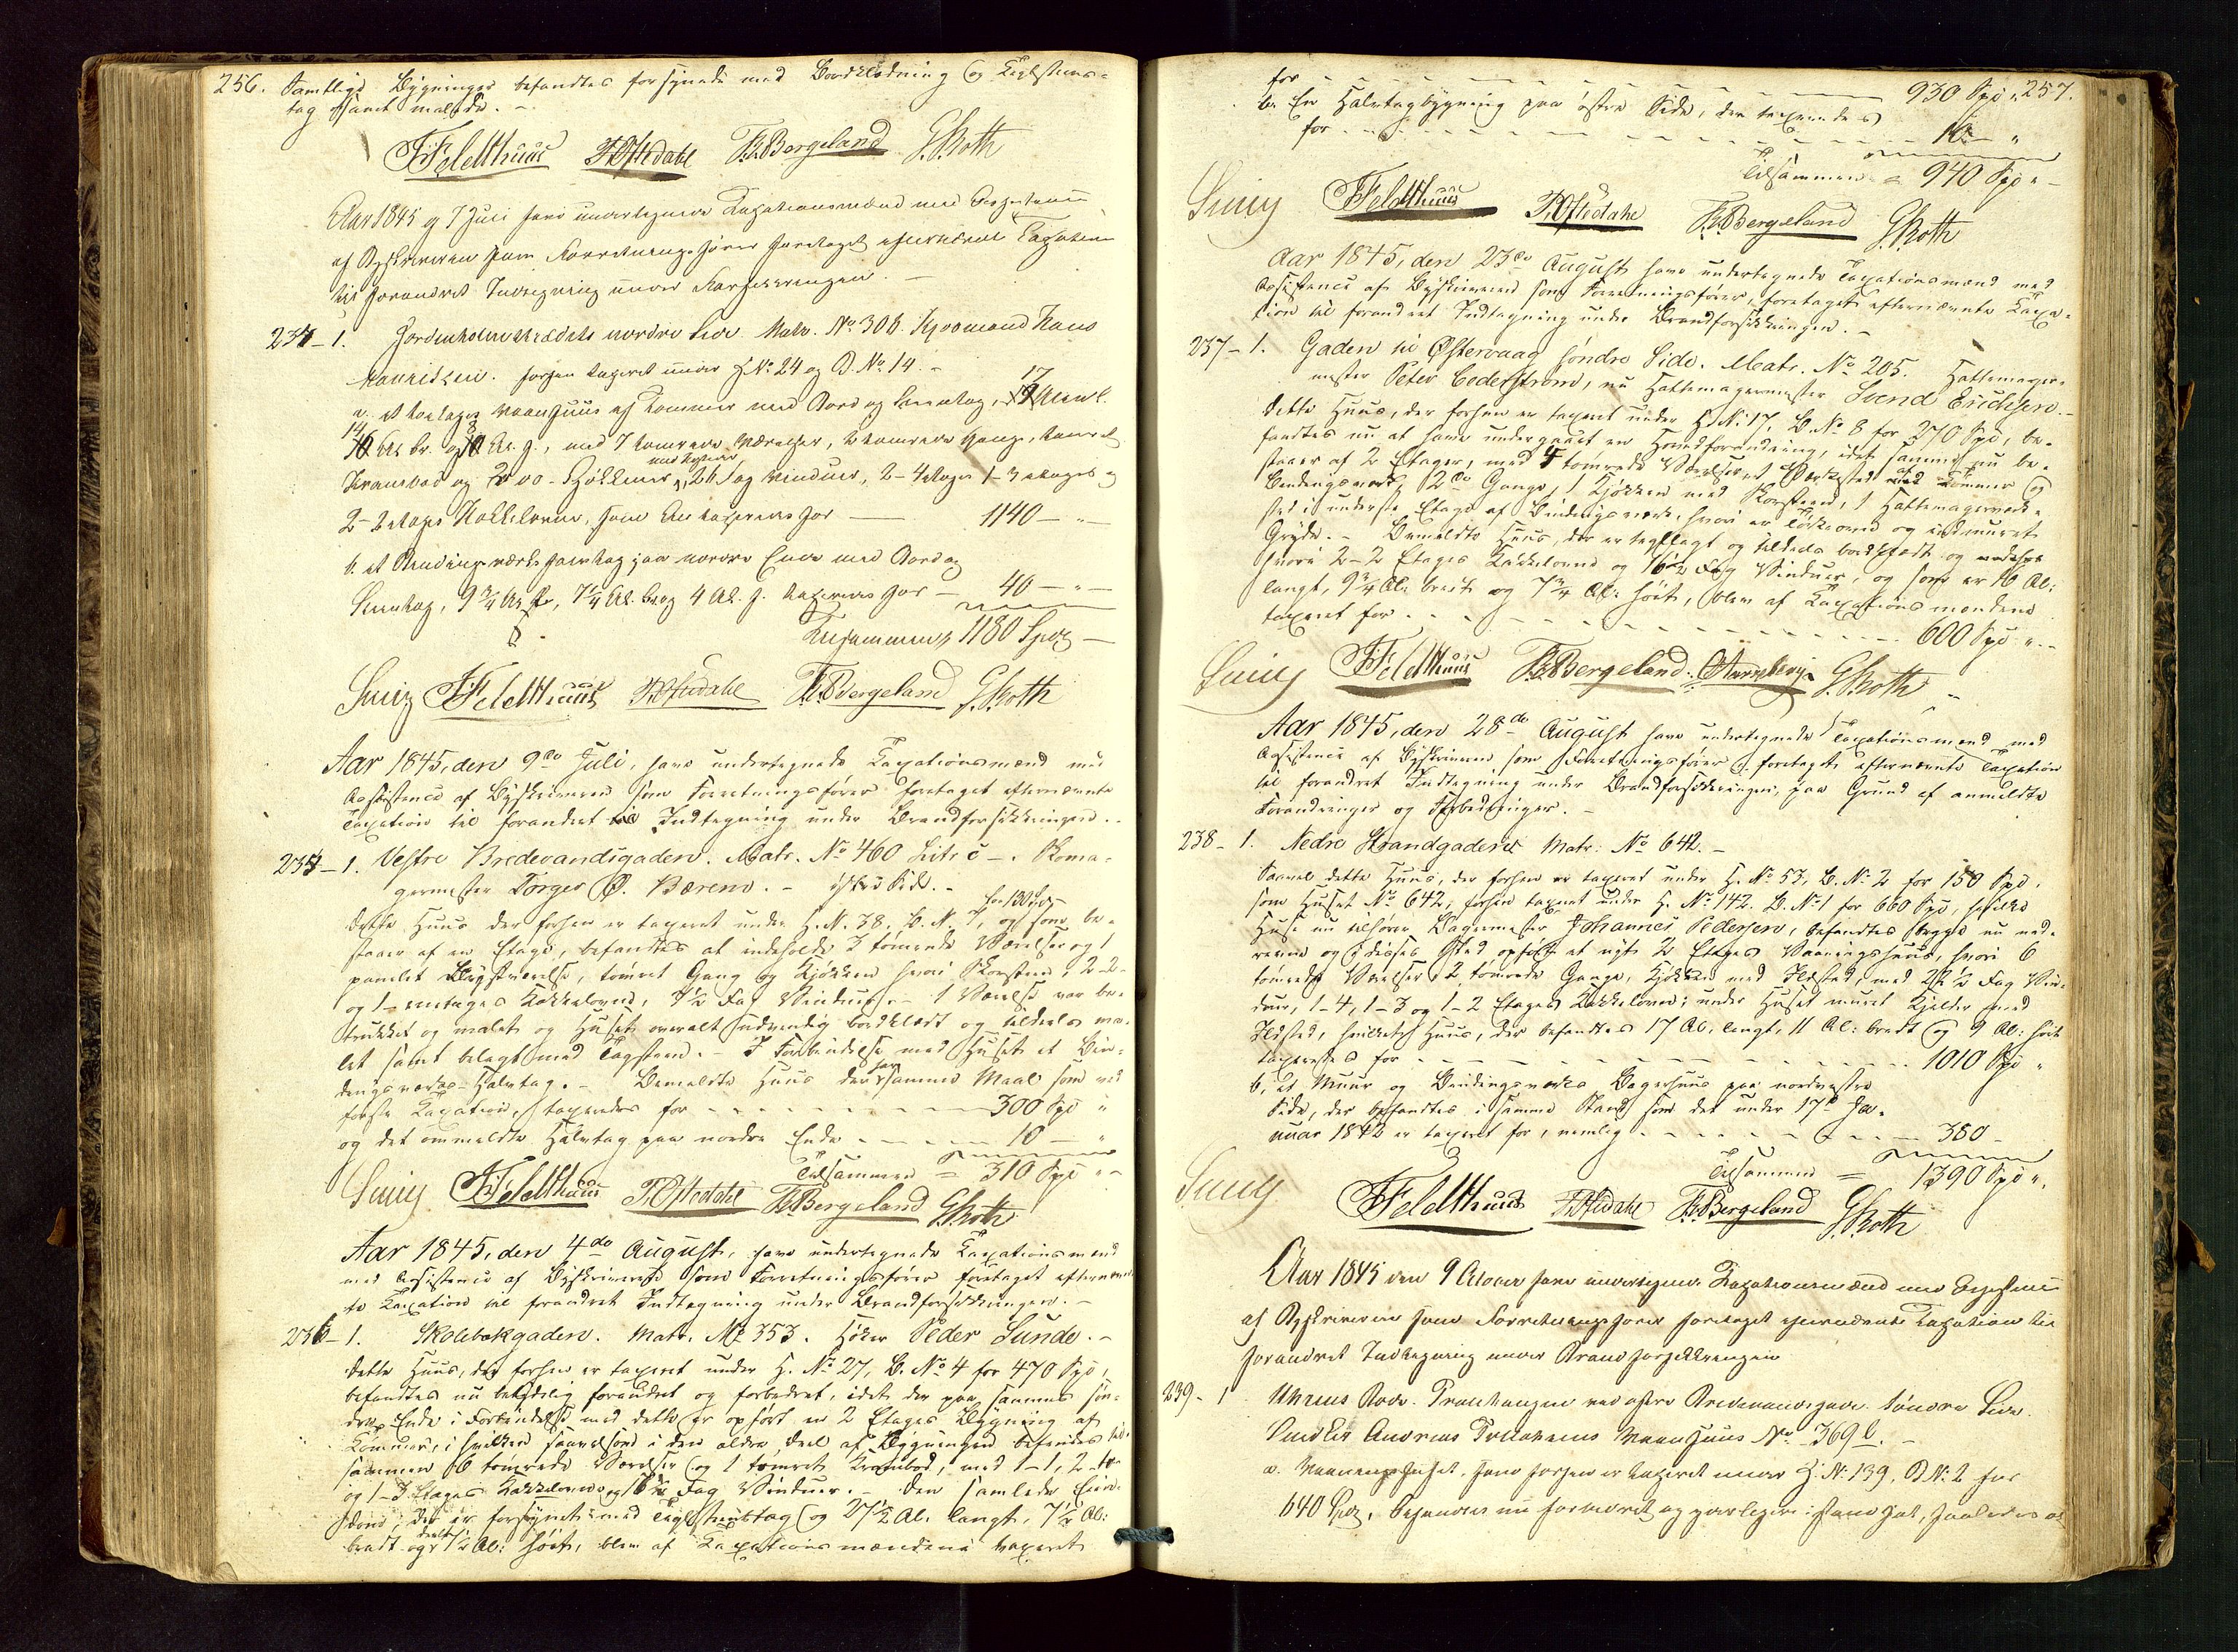 256. Samtlige Bygninger befandtes forsynede med Bordklædning og Teglsteens-
tag samt malede. –
FFeldthuus TOftedahl TBBergeland GRoth
Aar 1845 og 7 Juli have undertegnede Taxationsmænd med Assistence
af Byskriveren som Forretningsfører foretaget efternævnte Taxation
til forandret Indtegning under Forsikkringen. –
234 – 1. Jordenholmstrædets nordre Side Matr. No 306. Kjøbmand Hans
Lauritzen. forhen taxeret under H. No 24 og B. No 14. –
a. et to etages Vaanhuus af Tømmer med Bord og Steentag, 17 Alen l.
Al. br. og Al. h., med 7 tømrede Værelser, 2 tømrede Gange, tømret
Krambod og Kjøkkener, 26 Fag Vinduer, 2 – 4 etages 1 – 3 etages og
2 – 2 etages Kakkelovne, som blev taxeret for 1140 – "
b. et Bindingsværks paa nordre Ende med Bord og
Steentag, 9 3/4 Al. l., 7 1/4 Al. br. og 4 Al. h. taxeredes for – 40 – " –
Tilsammen 1180 Spd –
FFeldthuus TOftedahl TBBergeland GRoth
Aar 1845, den 9de Juli, have undertegnede Taxationsmænd med
Assistence af Byskriveren som Forretningsfører foretaget efternævnte
Taxation til forandret Indtegning under Brandforsikkringen. –
235 – 1. Vestre Bredevandsgaden. Matr. No 460 Litr c – . Skoma-
germester Torger Ø. Bærem. – østre Side. –
for 130 Spd
Dette Huus der forhen er taxeret under H. N. 38, B. N. 1, og som be-
staaer af en Etage, befandtes at indeholde 3 tømrede Værelser og 1
panelet Værelse, tømret Gang og Kjøkken hvori Skorsteen, 2 – 2
og 1 – eenetages Kakkelovne, Fag Vinduer. – 1 Værelse var be-
trukket og malet og Huset overalt udvendig bordklædt og tildeels ma-
let samt belagt med Tagsteen. – I Forbindelse med Huset et Bin-
dingsværks-Halvtag. – Bemeldte Huus der har samme Maal som ved
første Taxation, taxeredes for – – – – – 300 Spd "
og det ommeldte Halvtag paa nordre Ende – – – – 10 – "
Tilsammen = 310 Spd " –
FFeldthuus TOftedahl TBBergeland GRoth
Aar 1845, den 4de August, have undertegnede Taxationsmænd
med Assistence af Byskriveren som Forretningsfører foretaget efternævn-
te Taxation til forandret Indtegning under Brandforsikkringen. –
236 – 1. Skolebækgaden. Matr. No 353. Høker Peder Sunde. –
Dette Huus, der forhen er taxeret under H. No 27, B. No 4 for 470 Spd,
befandtes nu betydelig forandret og forbedret, idet der paa sammes søn-
dre Ende i Forbindelse med dette er opført en 2 Etages Bygning af
Tømmer, i hvilken saavelsom i den ældre Deel af Bygningen befandtes til-
sammen 6 tømrede Værelser og 1 tømret Krambod, med 1 – 1, 2 – to
og 1 – 3 Etages Kakkelovne og Fag Vinduer. – Den samlede Eien-
dom, der er forsynet med Teglsteenstag og 27 1/2 Al. langt, 7 1/2 Al:
bredt og Al: høit, blev af Taxationsmændene taxeret
257.
for – – – – – – – 930 Spd "
b. En Halvtagbygning paa østre Side, der taxeredes
for – – – – – – – 10 – "
Tilsammen = 940 Spd " –
FFeldthuus TOftedahl TBBergeland GRoth
Aar 1845, den 23de August have undertegnede Taxationsmænd med
Assistence af Byskriveren som Forretningsfører, foretaget efternævnte Taxa-
tion til forandret Indtegning under Brandforsikkringen. –
237 – 1. Gaden til Østervaag søndre Side. Matr. No 205. Hattemager-
mester Peter Cederstrøm, nu Hattemagermester Svend Erichsen. –
Dette Huus, der forhen er taxeret under H. N: 17, B. No 8 for 270 Spd, be-
fandtes nu at have undergaaet en Hovedforandring, idet samme nu be-
staaer af 2 Etager, med 4 tømrede Værelser, 1 Værksted af Tømmer og
Bindingsværk, 2de Gange, 1 Kjøkken med Skorsteen, 1 Hattemagerværk-
sted i underste Etage af Bindingsværk, hvori er Tørkeovn og indmuret
Gryde. – Bemeldte Huus, der er teglhengt og tildeels bordklædt og
hvori 2 – 2 Etages Kakkelovne og 16 1/2 Fag Vinduer, og som er 16 Al:
langt, 9 3/4 Al: bredt og 7 3/4 Al: høit, blev af Taxationsmændene
taxeret for – – – – – – 600 Spd " –
FFeldthuus TBBergeland GRoth –
Aar 1845, den 28de August have undertegnede Taxationsmænd med
Assistence af Byskriveren som Forretningsfører foretaget efternævnte Taxation
til forandret Indtegning under Brandforsikkringen, paa Grund af anmeldte
Forandringer og Forbedringer. –
238 – 1. Nedre Strandgaden Matr: No 642. –
Saavel dette Huus, der forhen er taxeret under H. No 53, B. No 2 for 150 Spd,
som Huset No 642, forhen taxeret under H. No 142. B. No 1 for 660 Spd, hvilke
Huse nu tilhører Bagermester Johannes Pedersen, befandtes begge nu ned-
revne og i disses Sted opført et nyt 2 Etages Vaaningshuus, hvori 6
tømrede Værelser, 2 tømrede Gange, Kjøkken med Ildsted, med 1/2 Fag Vin-
duer, 1 – 4, 1 – 3 og 1 – 2 Etages Kakkelovne; under Huset muret Kjelder med
Ildsted, hvilket Huus, der befandtes 17 Al. langt, 11 Al: bredt og 9 Al: høit
taxeredes for – – – – – – 1010 Spd "
b, et Muur og Bindingsværks Bagerhuus paa nordvestre
Side, der befandtes i samme Stand som det under 17de Ja-
nuar 1842 er taxeret for, nemlig – – – – – 380 –
Tilsammen = 1390 Spd ".
FFeldthuus TOftedahl TBBergeland GRoth
Aar 1845 den 9 October have undertegnede Taxationsmænd med Assistence
af Byskriveren som Forretningsfører foretaget efternævnte Taxation til
forandret Indtegning under Brandforsikkringen
239 – 1 Rode. ved østre Bredevandsgade søndre Side.
Snedker Andreas Vaanhuus No 369 b. –
a. Vaaningshuset, som forhen er taxeret under H. No 139, B N: 2 for
640 Spd, befandtes nu forbedret og